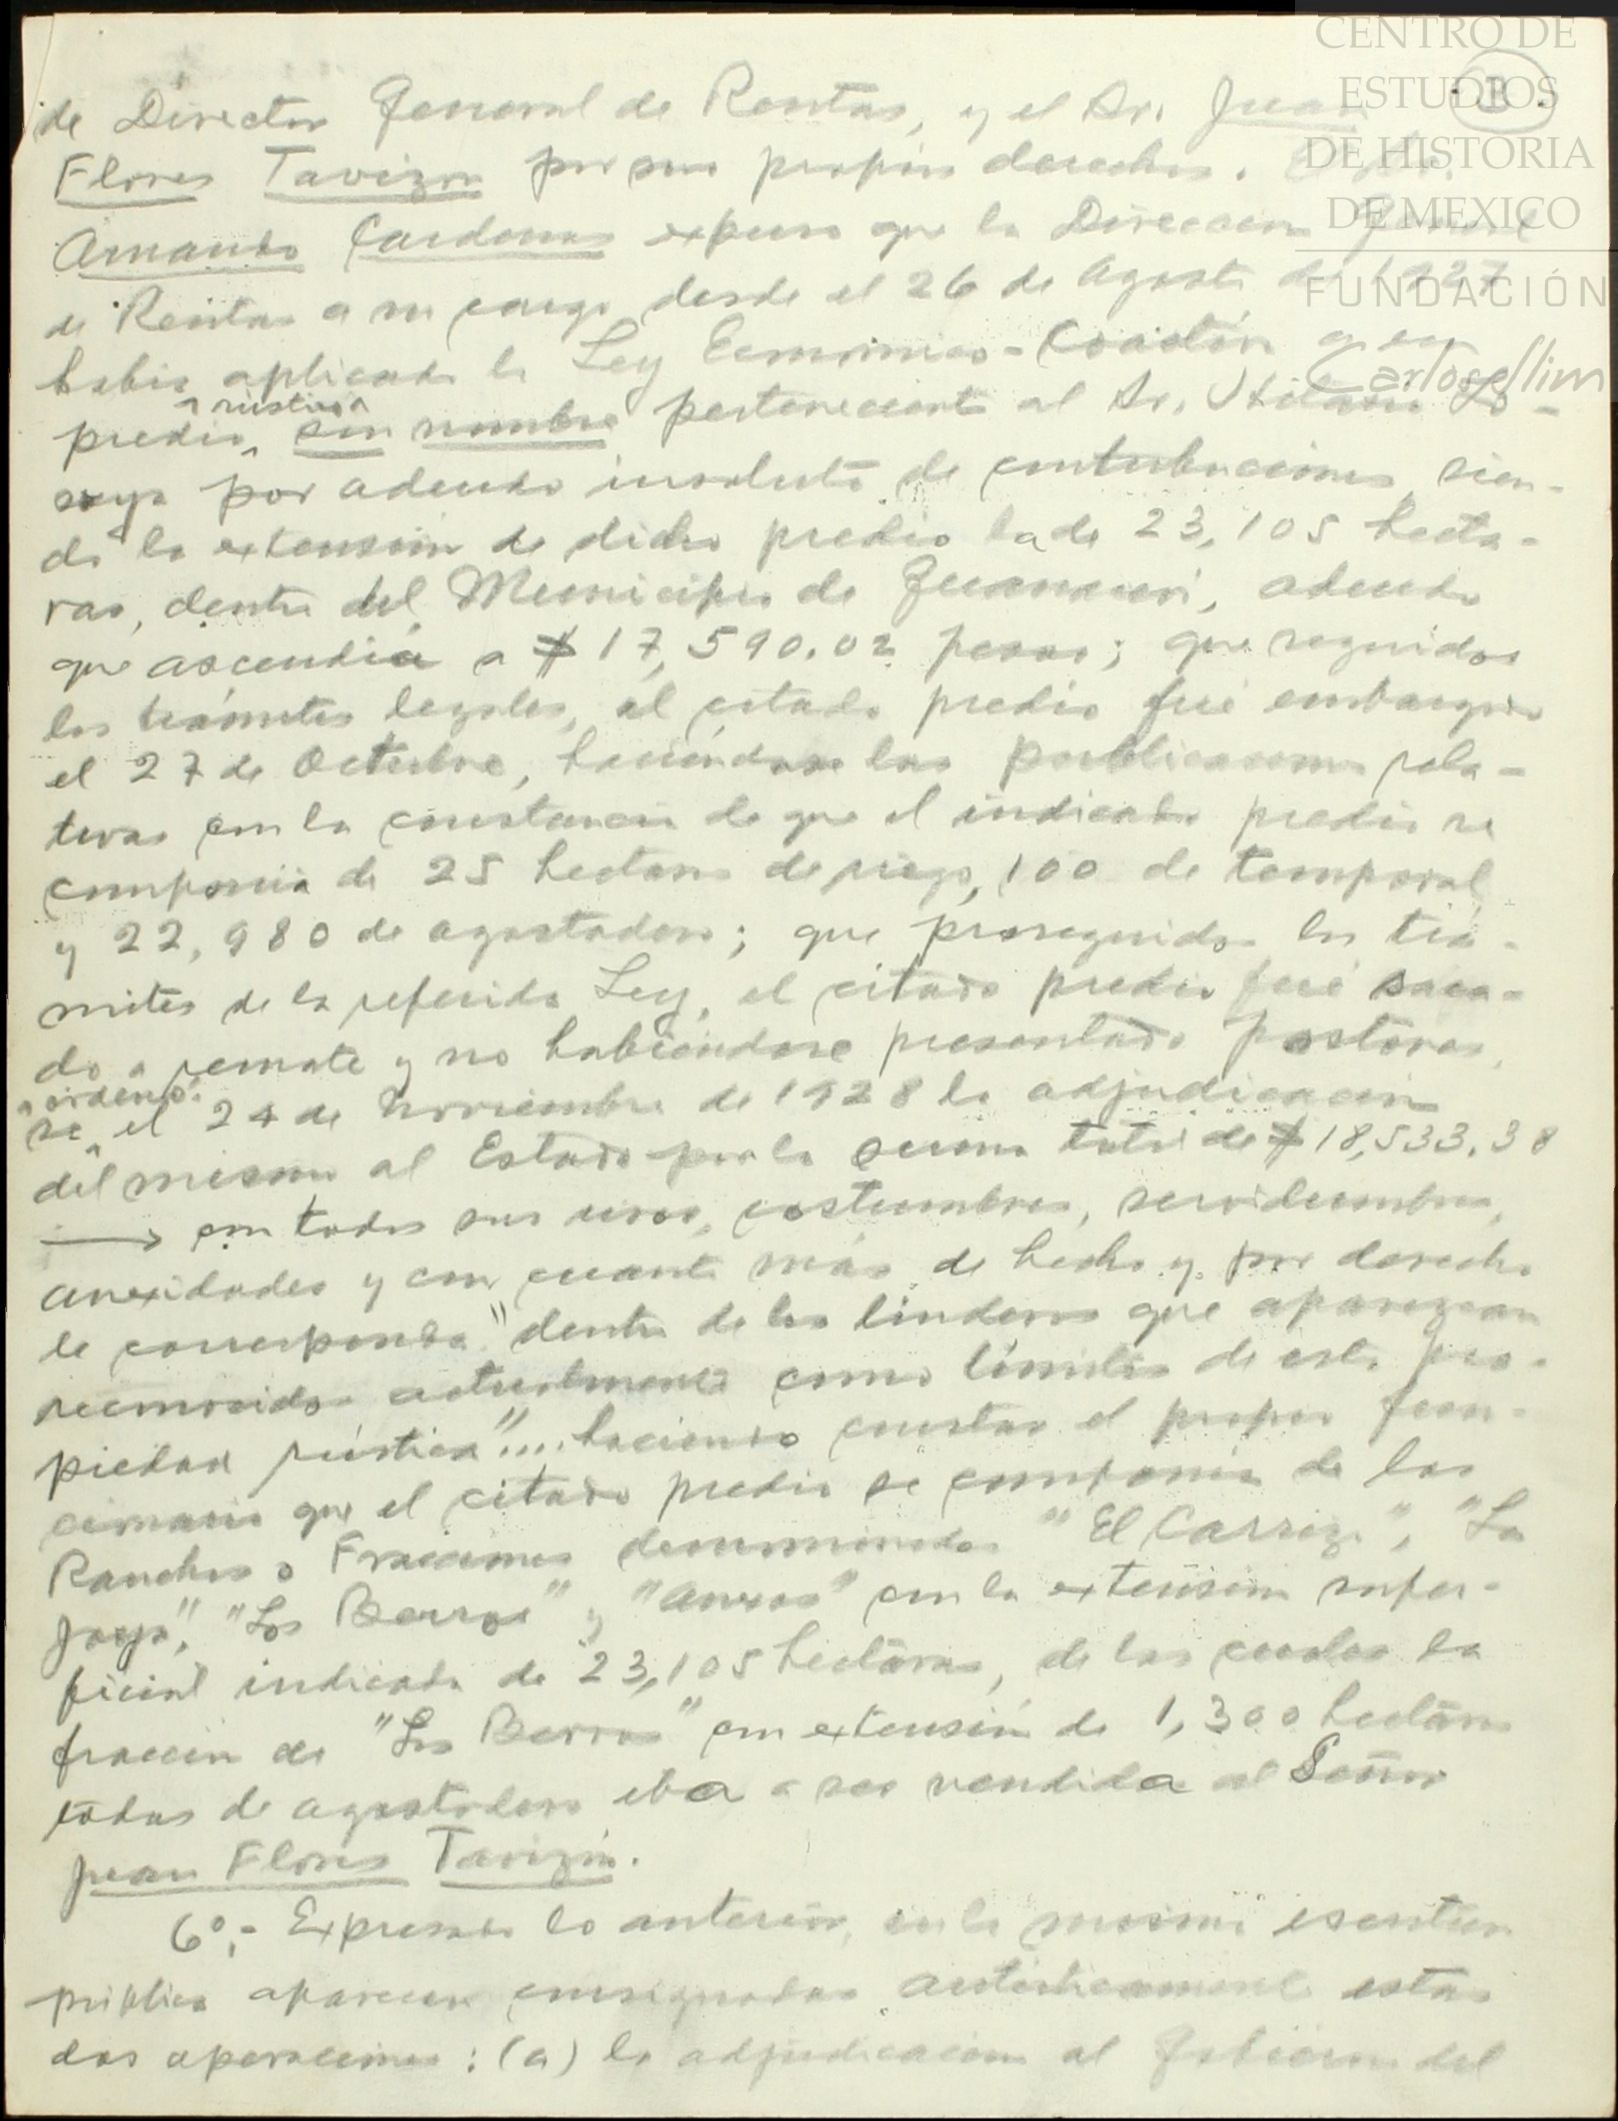 CENTRO DE
ESTUDIOS
DE HISTORIA
DE MEXICO
FUNDACIÓN
Carlos Slim
3.
de Director General de Rentas, y el Sr. Juan
Flores Tavizon por sus propios derechos. El Sr.
Armando Cardenas expuso que la Direccion General
de Rentas a su cargo desde el 26 de Agosto de 1927
habia aplicado la Ley Economico-Coactiva a un
predio ^rustico^ sin nombre perteneciente al Sr. Lo-
zoya por adeudo insoluto de contribuciones, sien-
do la extension de dicho predio la de 23,105 hecta-
reas, dentro del Municipio de Guanacevi, adeudo
que ascendia a $17,590.02 pesos; que seguidos
los trámites legales, el citado predio fué embargado
el 27 de Octubre, haciendose las publicaciones rela-
tivas con la constancia de que el indicado predio se
componia de 25 hectareas de riego, 100 de temporal
y 22,980 de agostadero; que proseguidos los trá-
mites de la referida Ley, el citado predio fué saca-
do a remate y no habiéndose presentado postores,
se ^ordenó^ el 24 de Noviembre de 1928 la adjudicacion
del mismo al Estado por la suma total de $18,533.38
→ con todos sus usos, costumbres, servidumbres,
anexidades y con cuanto más de hecho y por derecho
le corresponda "dentro de los linderos que aparezcan
reconocidos actualmente como límites de esta pro-
piedad rústica".... haciendo constar el propio fun-
cionario que el citado predio se componia de los
Ranchos o Fracciones denominados "El Carrizo", "La
Joya", "Los Berros" y "Anexas" con la extension super-
ficial indicada de 23,105 hectáreas, de las cuales la
fraccion de "Los Berros" con extensión de 1,300 hectáreas
todas de agostadero iba a ser vendida al Señor
Juan Flores Tavizón.
6º.- Expresado lo anterior, en la misma escritura
pública aparecen consignadas auténticamente estas
dos operaciones: (a) la adjudicacion al Gobierno del